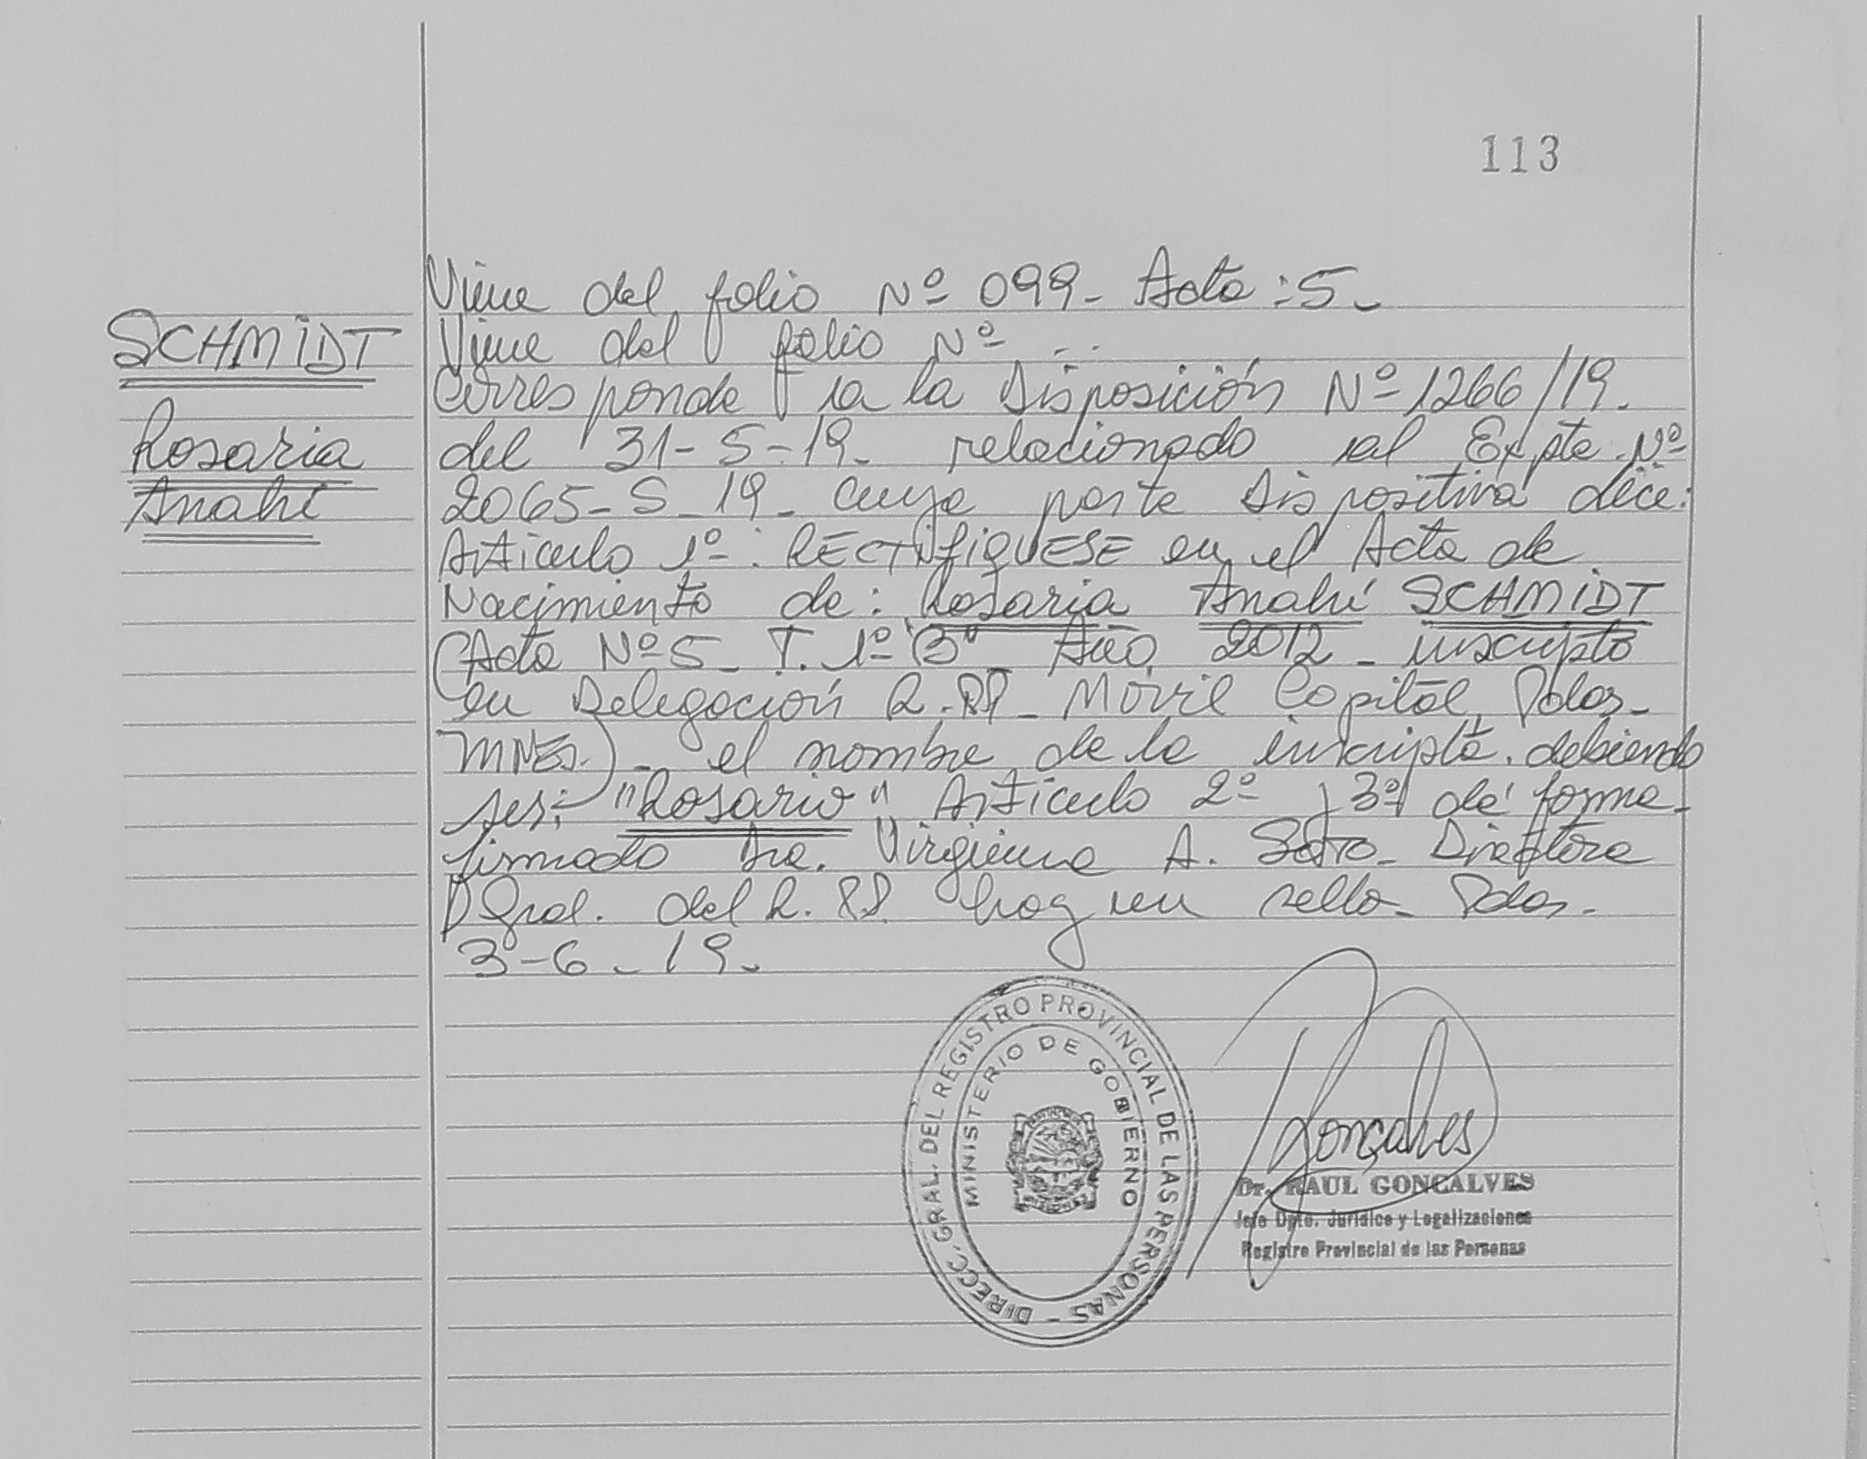 113
Viene del folio Nº 099- Acta: 5-
Viene del folio Nº --
SCHMIDT
Rosaria
Anahí
Corresponde a la Disposición Nº 1266/19.
del 31-5-19- relacionado al Expte. Nº
2065-S-19- cuya parte dispositiva dice:
Artículo 1º: RECTIFIQUESE en el Acta de
Nacimiento de: Rosaria Anahí SCHMIDT
(Acta Nº 5- T. 1º "B" Año 2012- inscripto
en Delegación R.PP- Móvil Capital Pdas-
MNES.)- el nombre de la inscripta. debiendo
ser: "Rosario" Artículo 2º y 3º de forma-
firmado Dra. Virginia A. Directora
D Gral. del R.PP. hay un sello- Pdas-
3-6-19-
DIRECC. GRAL. DEL REGISTRO PROVINCIAL DE LAS PERSONAS -
MINISTERIO DE GOBIERNO
Goncalves
Dr. RAUL GONCALVES
Jefe Dpto. Jurídico y Legalizaciones
Registro Provincial de las Personas